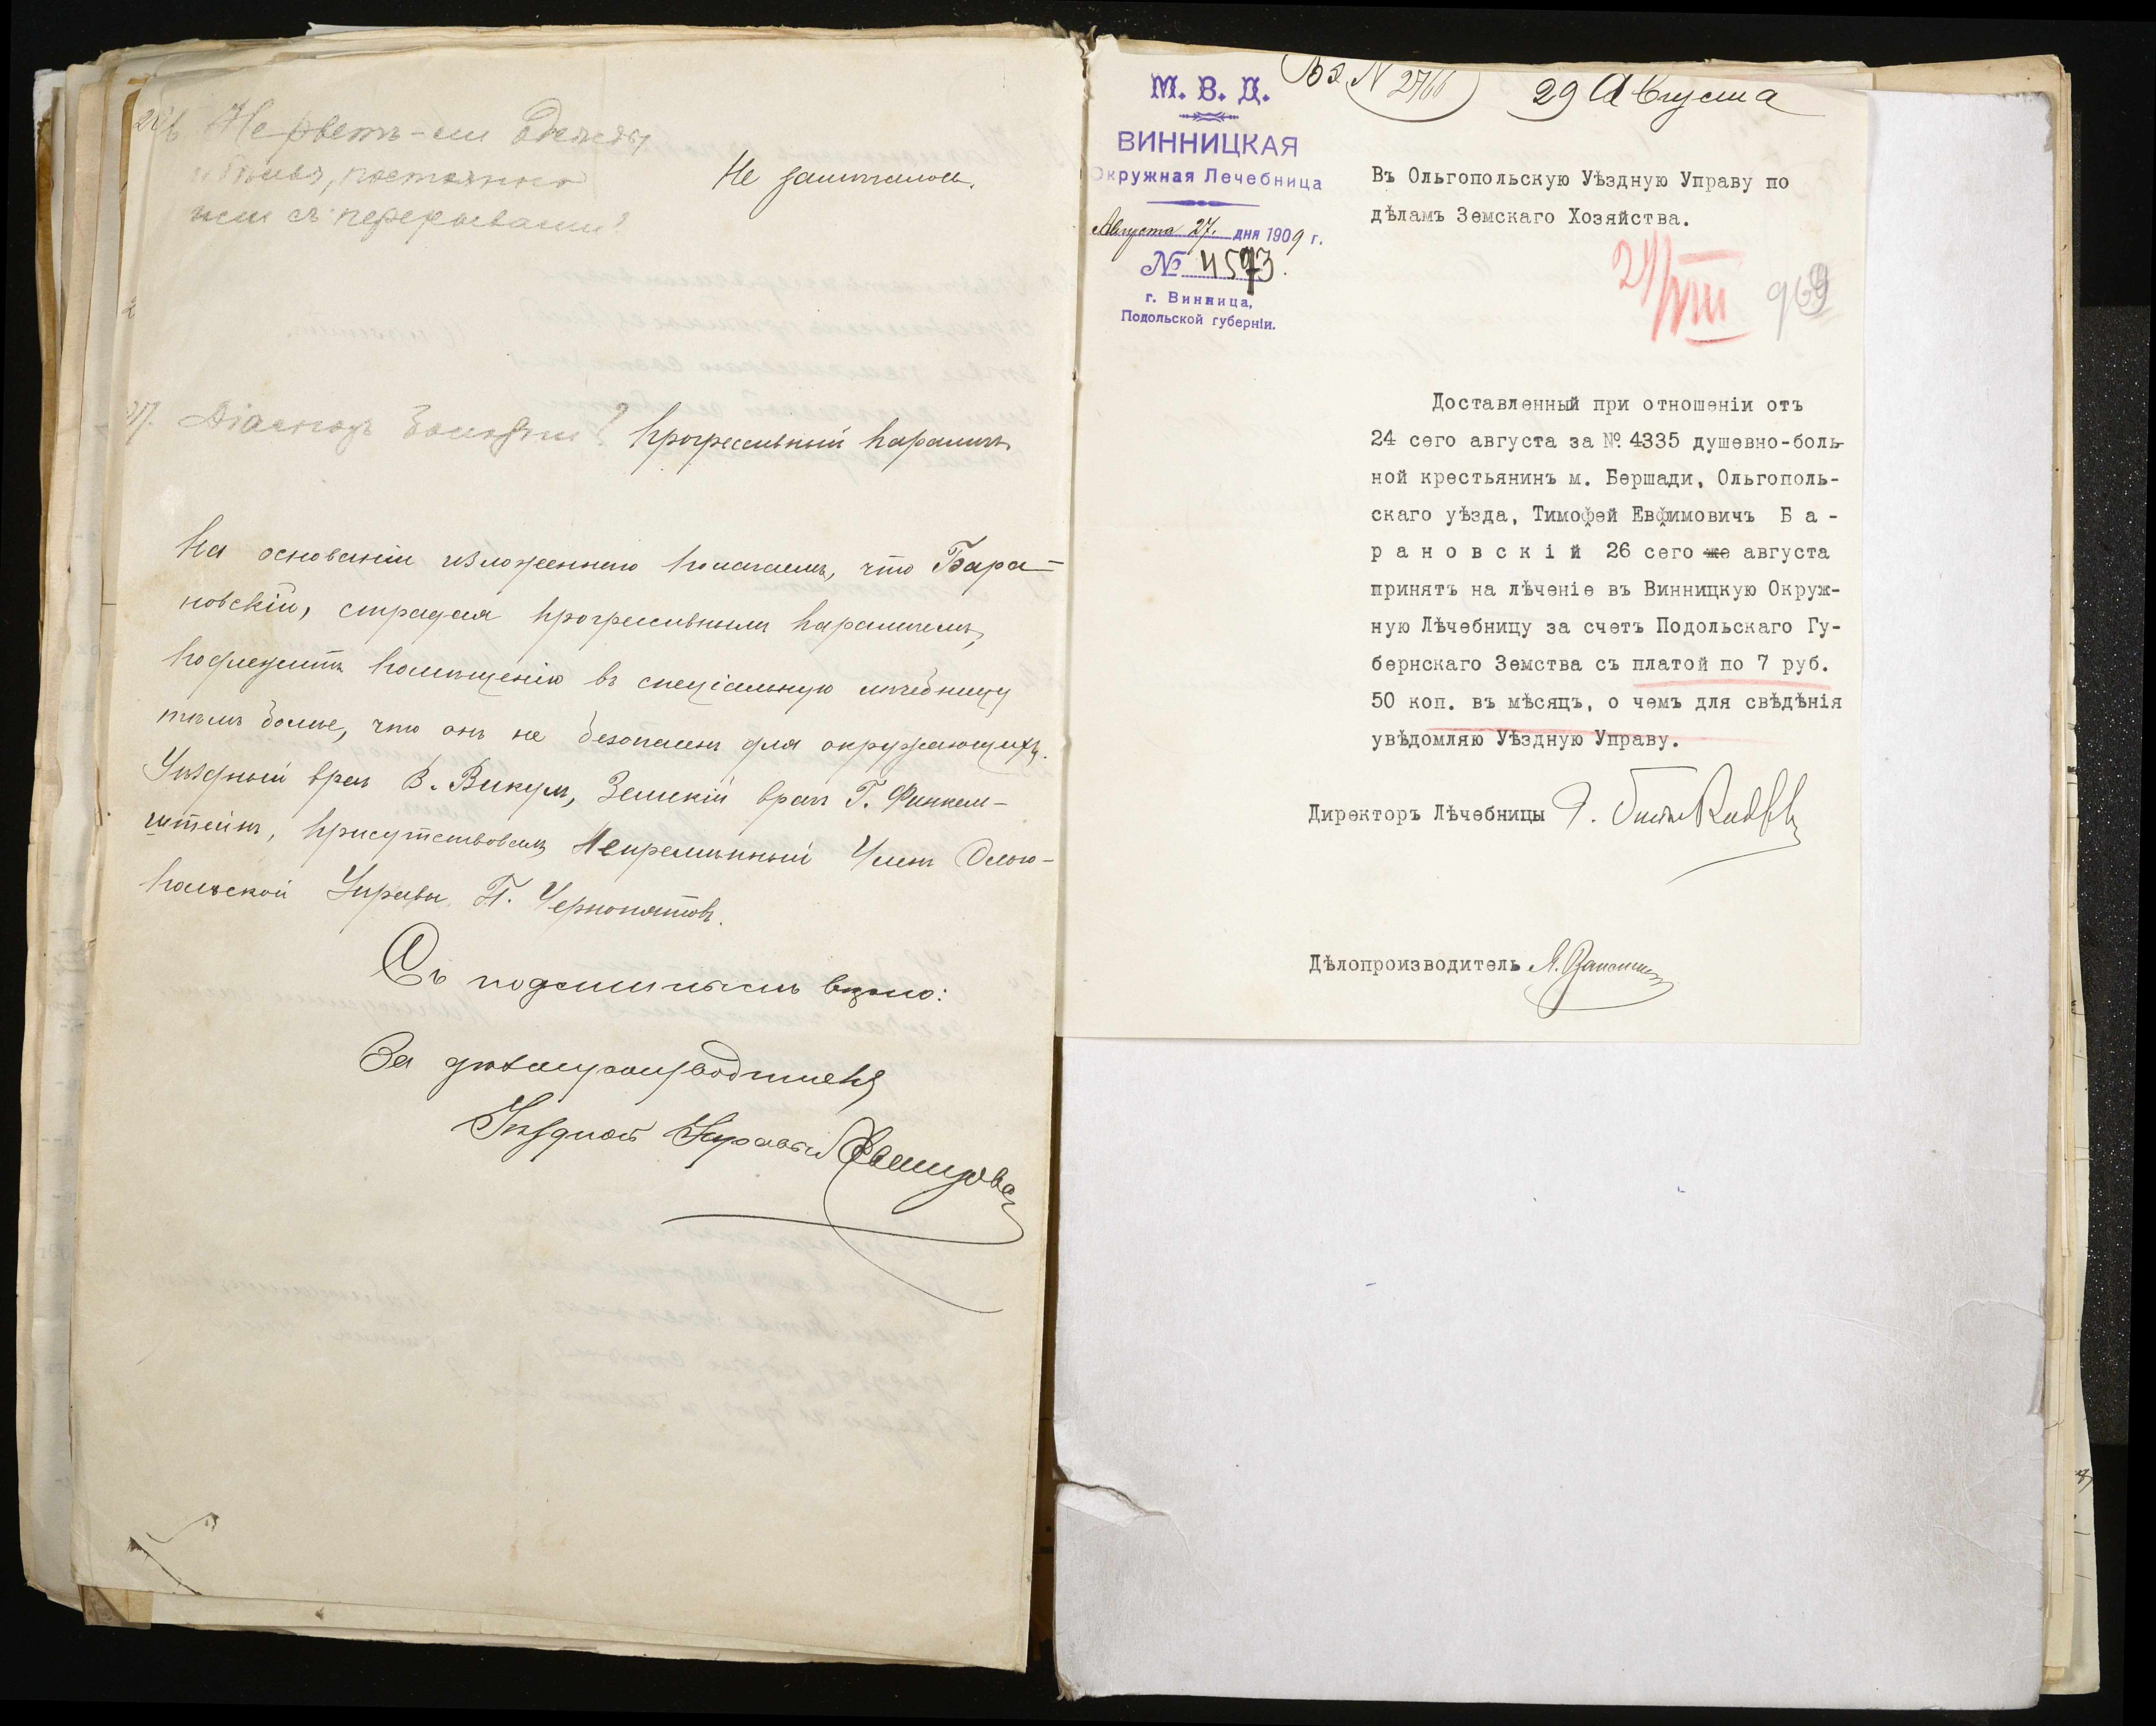 26. Не рветъ-ли одежды
и бѣлья, постоянно
или съ перерывами?
Не замѣчалось.
27. Діагнозъ болѣзни? Прогрессивный параличъ
На основаніи изложеннаго полагаемъ, что Бара-
новскій, страдая прогрессивнымъ параличемъ,
подлежитъ помѣщенію въ спеціальную лѣчебницу
тѣмъ болѣе, что онъ не безопасенъ для окружающихъ.
Уѣздный врачъ В. Викул, Земскій врачъ Г. Финкель-
штейнъ, присутствовалъ Непремѣнный Членъ Ольго-
польской Управы П. Чернопятовъ.
Съ подлиннымъ вѣрно:
За дѣлопроизводителя
Уѣздной Управы
М. В. Д.
ВИННИЦКАЯ
Окружная Лечебница
Августа 27 дня 1909 г.
№ 4593.
г. Винница,
Подольской губерніи.
Вх № 2766 29 Августа
Въ Ольгопольскую Уѣздную Управу по
дѣламъ Земскаго Хозяйства.
29/VIII 969
Доставленный при отношеніи отъ
24 сего августа за № 4335 душевно-боль-
ной крестьянинъ м. Бершади, Ольгополь-
скаго уѣзда, Тимофей Евфимовичъ Б а -
р а н о в с к і й 26 сего же августа
принятъ на лѣченіе въ Винницкую Окруж-
ную Лѣчебницу за счетъ Подольскаго Гу-
бернскаго Земства съ платой по 7 руб.
50 коп. въ мѣсяцъ, о чемъ для свѣдѣнія
увѣдомляю Уѣздную Управу.
Директоръ Лѣчебницы
Дѣлопроизводитель